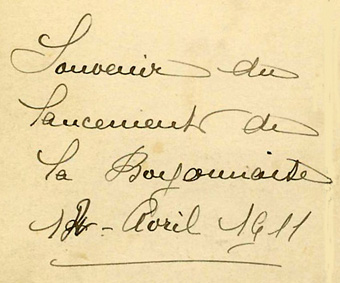 Souvenir du
lancement de
La Bayonnaise
- Avril 1911